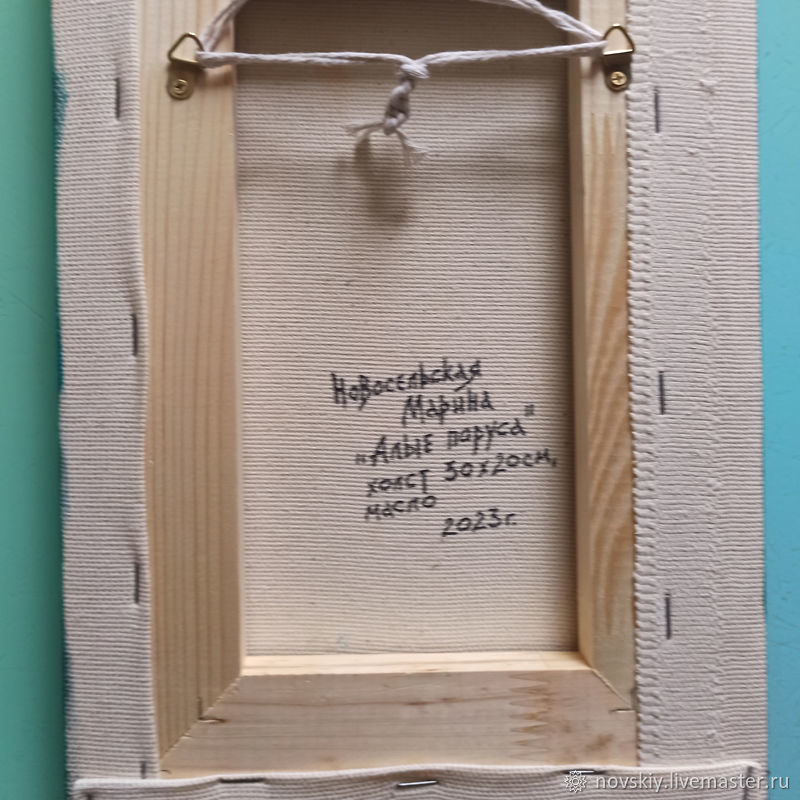 Новосельская
Марина
"Алые паруса"
холст 30х20см,
масло
2023г.
novskiy.livemaster.ru